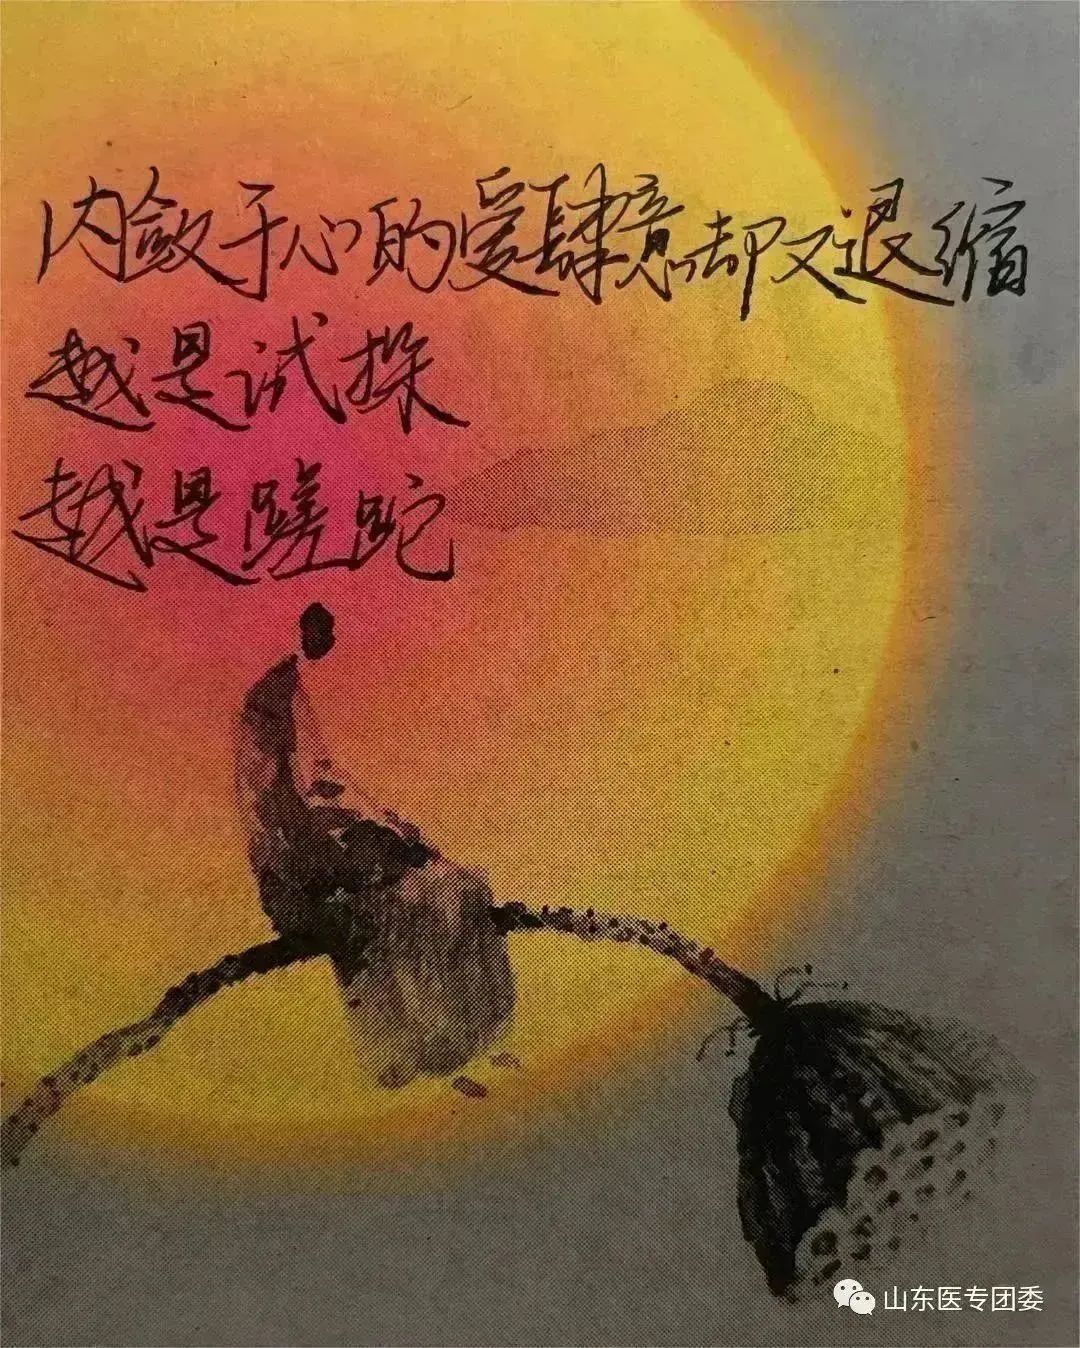 内敛于心的爱肆意却又退缩
越是试探
越是蹉跎
山东医专团委